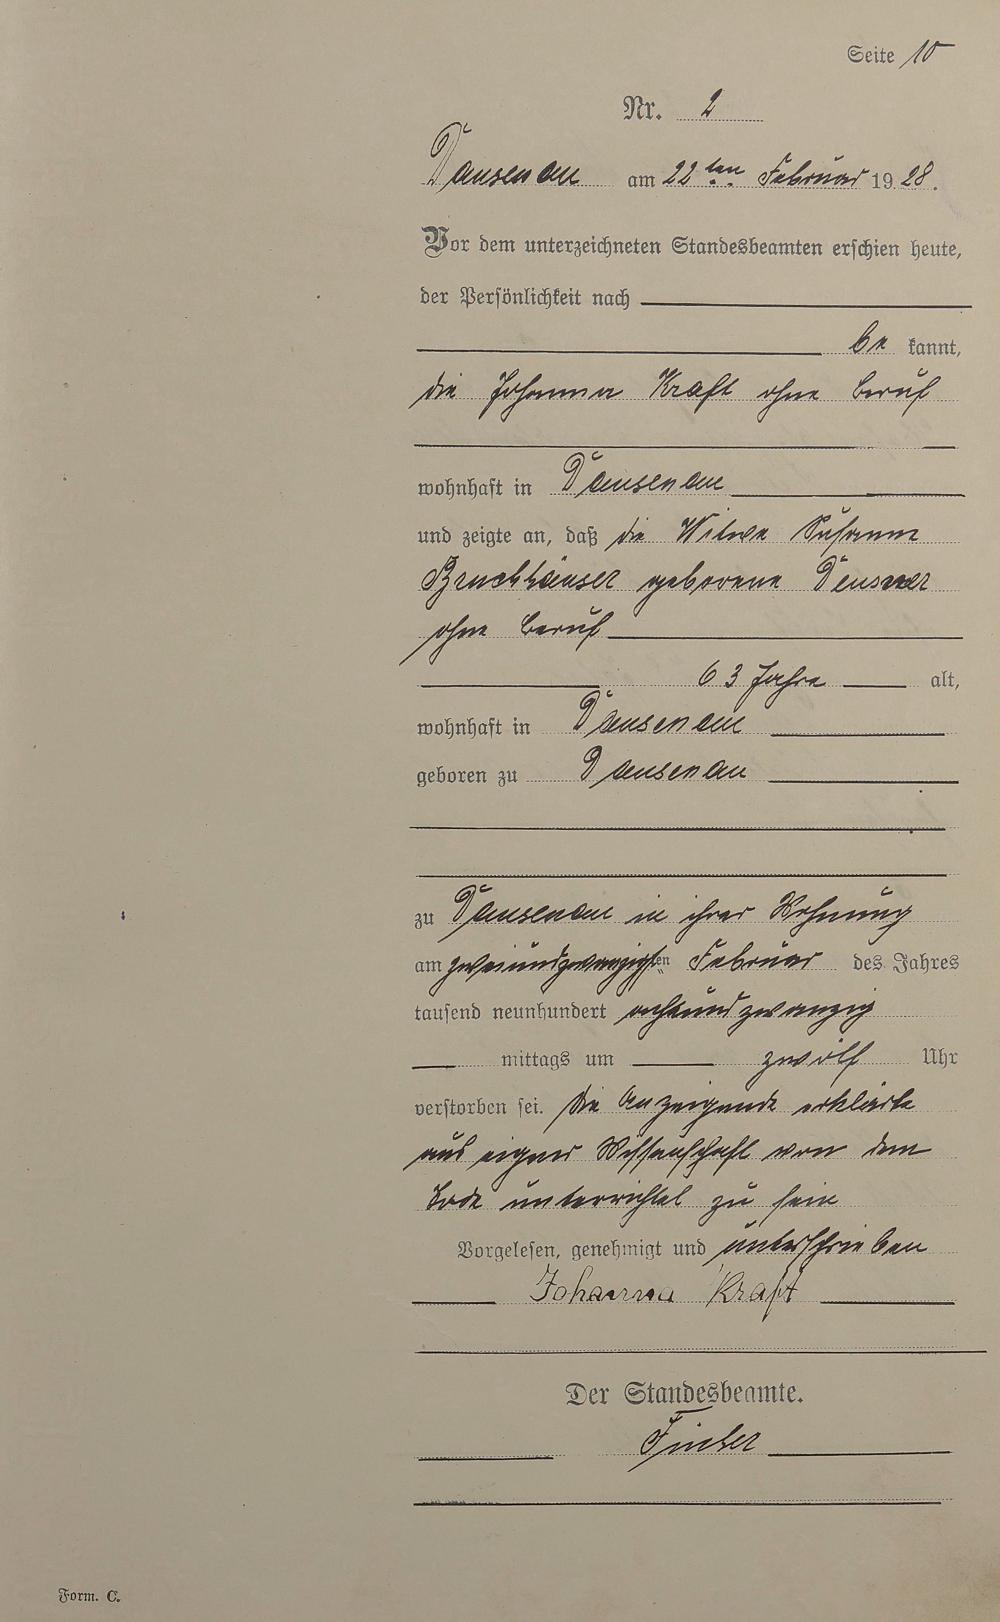 Seite 10
Nr. 2
Dausenau am 22ten Februar 1928.
Vor dem unterzeichneten Standesbeamten erschien heute,
der Persönlichkeit nach
be kannt,
die Johanna Kraft ohne Beruf
wohnhaft in Dausenau
und zeigte an, daß die Witwe Susanne
Bruchhäuser geborene Deusner
ohne Beruf
63 Jahre alt,
wohnhaft in Dausenau
geboren zu Dausenau
zu Dausenau in ihrer Wohnung
am zweiundzwanzigsten Februar des Jahres
tausend neunhundert achtundzwanzig
mittags um zwölf Uhr
verstorben sei. Die Anzeigende erklärte
aus eigner Wissenschaft von dem
Tode unterrichtet zu sein
Vorgelesen, genehmigt und unterschrieben
Johanna Kraft
Der Standesbeamte.
Form. C.